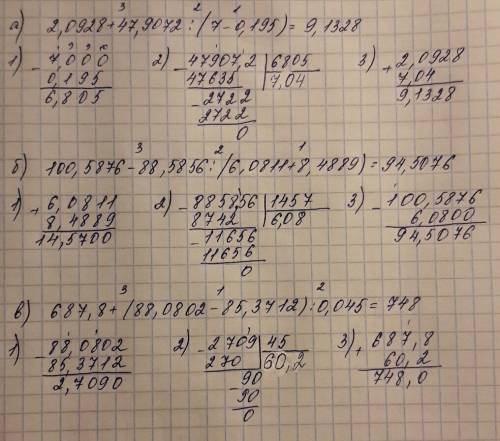 3 2 1
а) 2,0928+47,9072:(7-0,195)=9,1328
1) - 7,000 2) - 47907,2 | 6805 3) + 2,0928
0,195 47635 | 7,04 7,04
6,805 - 2722 9,1328
2722
0
3 2 1
б) 100,5876-88,5856:(6,0811+8,4889)=94,5076
1) + 6,0811 2) - 885856 | 1457 3) - 100,5876
8,4889 8742 | 6,08 6,0800
14,5700 - 11656 94,5076
11656
0
3 1 2
в) 687,8+(88,0802-85,3712):0,045=748
1) - 88,0802 2) - 2709 | 45 3) + 687,8
85,3712 270 | 60,2 60,2
2,7090 - 90 748,0
90
0